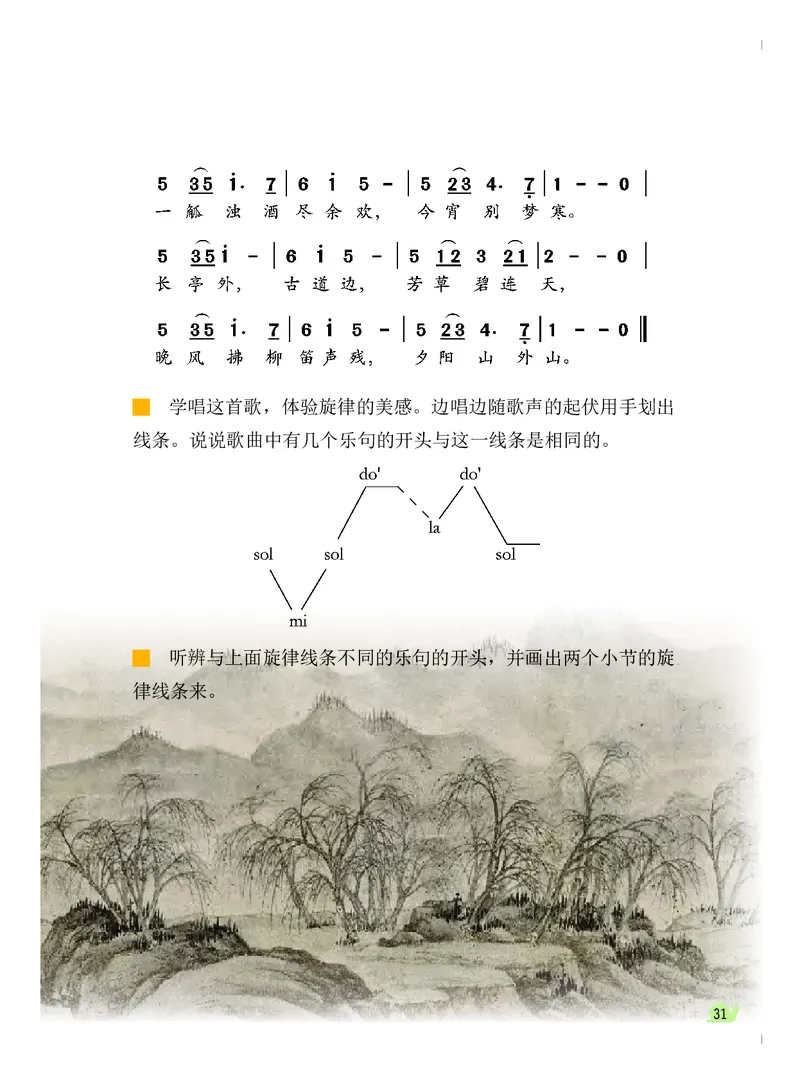 5 35 i· 7 | 6 i 5 - | 5 23 4· 7 | 1 - - 0 |
一 觚 浊 酒 尽 余 欢， 今 宵 别 梦 寒。
5 35i - | 6 i 5 - | 5 12 3 21 | 2 - - 0 |
长 亭 外， 古 道 边， 芳 草 碧 连 天，
5 35 i· 7 | 6 i 5 - | 5 23 4· 7 | 1 - - 0 ‖
晚 风 拂 柳 笛 声 残， 夕 阳 山 外 山。
学唱这首歌，体验旋律的美感。边唱边随歌声的起伏用手划出
线条。说说歌曲中有几个乐句的开头与这一线条是相同的。
do' do'
la
sol sol sol
mi
听辨与上面旋律线条不同的乐句的开头，并画出两个小节的旋
律线条来。
31